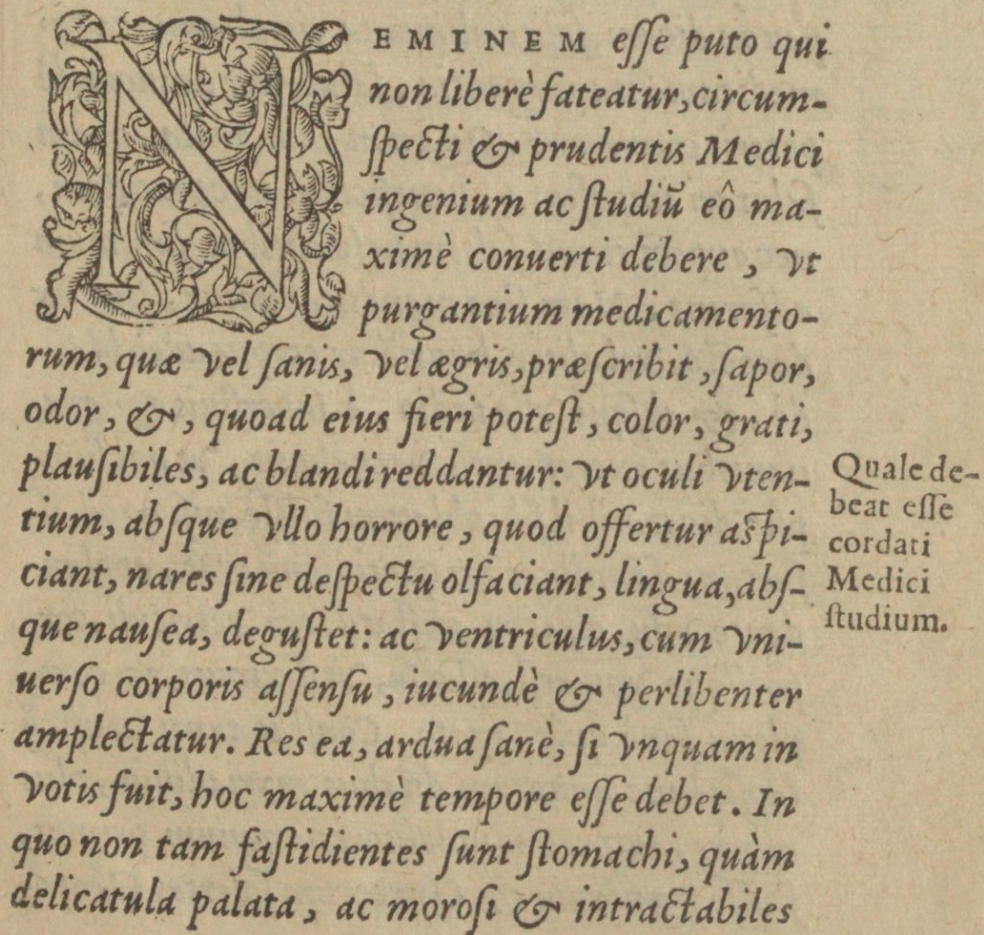 NEMINEM eſſe puto qui
non liberè fateatur, circum-
ſpecti & prudentis Medici
ingenium ac ſtudiũ eô ma-
ximè conuerti debere, vt
purgantium medicamento-
rum, quæ vel ſanis, vel ægris, præſcribit, ſapor,
odor, &, quoad eius fieri poteſt, color, grati,
plauſibiles, ac blandi reddantur: vt oculi vten-
tium, abſque vllo horrore, quod offertur aſpi-
ciant, nares ſine deſpectu olfaciant, lingua, abſ-
que nauſea, deguſtet: ac ventriculus, cum vni-
uerſo corporis aſſenſu, iucundè & perlibenter
amplectatur. Res ea, ardua ſanè, ſi vnquam in
votis fuit, hoc maximè tempore eſſe debet. In
quo non tam faſtidientes ſunt ſtomachi, quàm
delicatula palata, ac moroſi & intractabiles
Quale de-
beat eſſe
cordati
Medici
ſtudium.